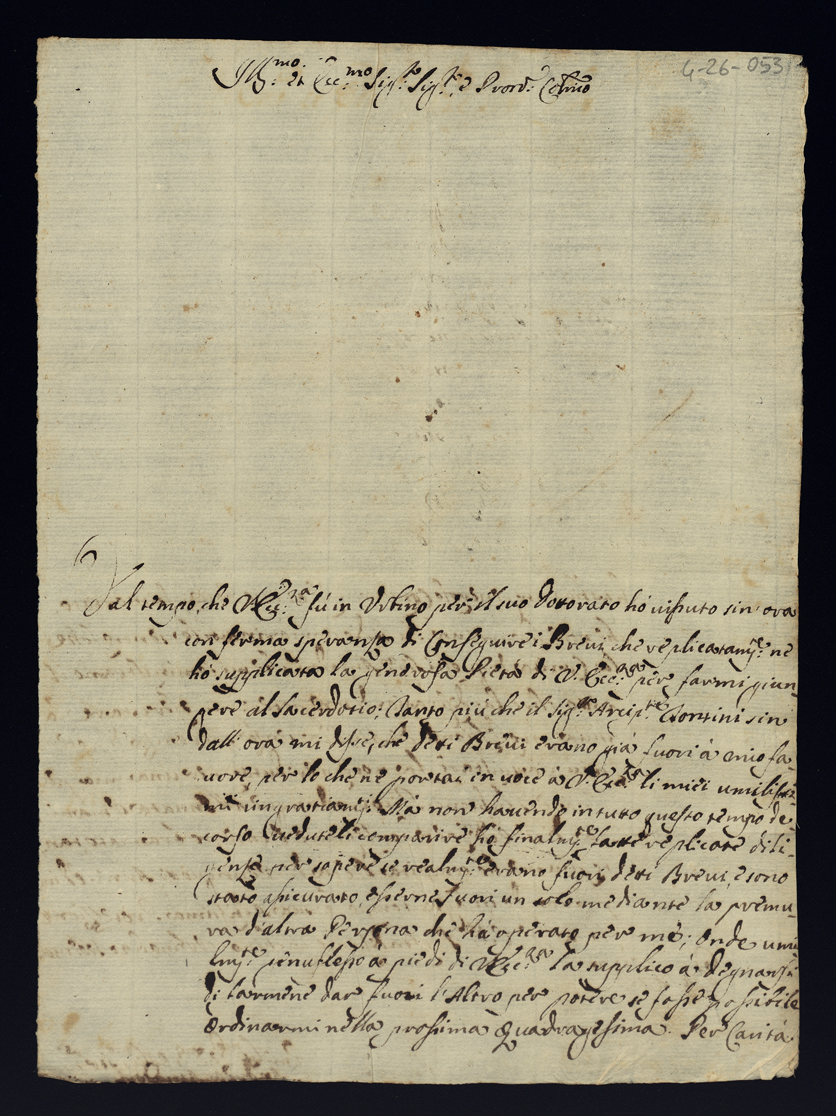 4-26-053
Ill:mo et Ecc:mo Sig:re Sig:re e Pron: Col:mo
Dal tempo, che V. Ecc:za fù in Urbino per il suo Dottorato hò vissuto sin ora
con ferma speranza di Conseguire i Brevi, che replicatam:te ne
hò supplicata la generosa Pietà di V. Ecc:za per farmi giun
gere al Sacerdotio; Tanto più che il Sig:re Arcip:te Tontini sin
dall' ora mi disse, che detti Brevi erano già fuori à mio fa-
vore, per lo che ne portai in voce à V. Ecc:za li miei umilissi-
mi ringratiam:ti. Mà non havendo in tutto questo tempo de-
corso veduteli comparire hò finalm:te fatte replicate dili-
genze per sapere se realm:te erano fuori detti Brevi, e sono
stato assicurato, esserne fuori un solo mediante la premu-
ra d'altra Persona che hà operato per mè; Onde umi
lm:te genuflesso à piedi di V. Ecc:za la supplico à degnarsi
di farmene dar fuori l'Altro per potere se fosse possibile
Ordinarmi nella prossima Quadragesima. Per Carità